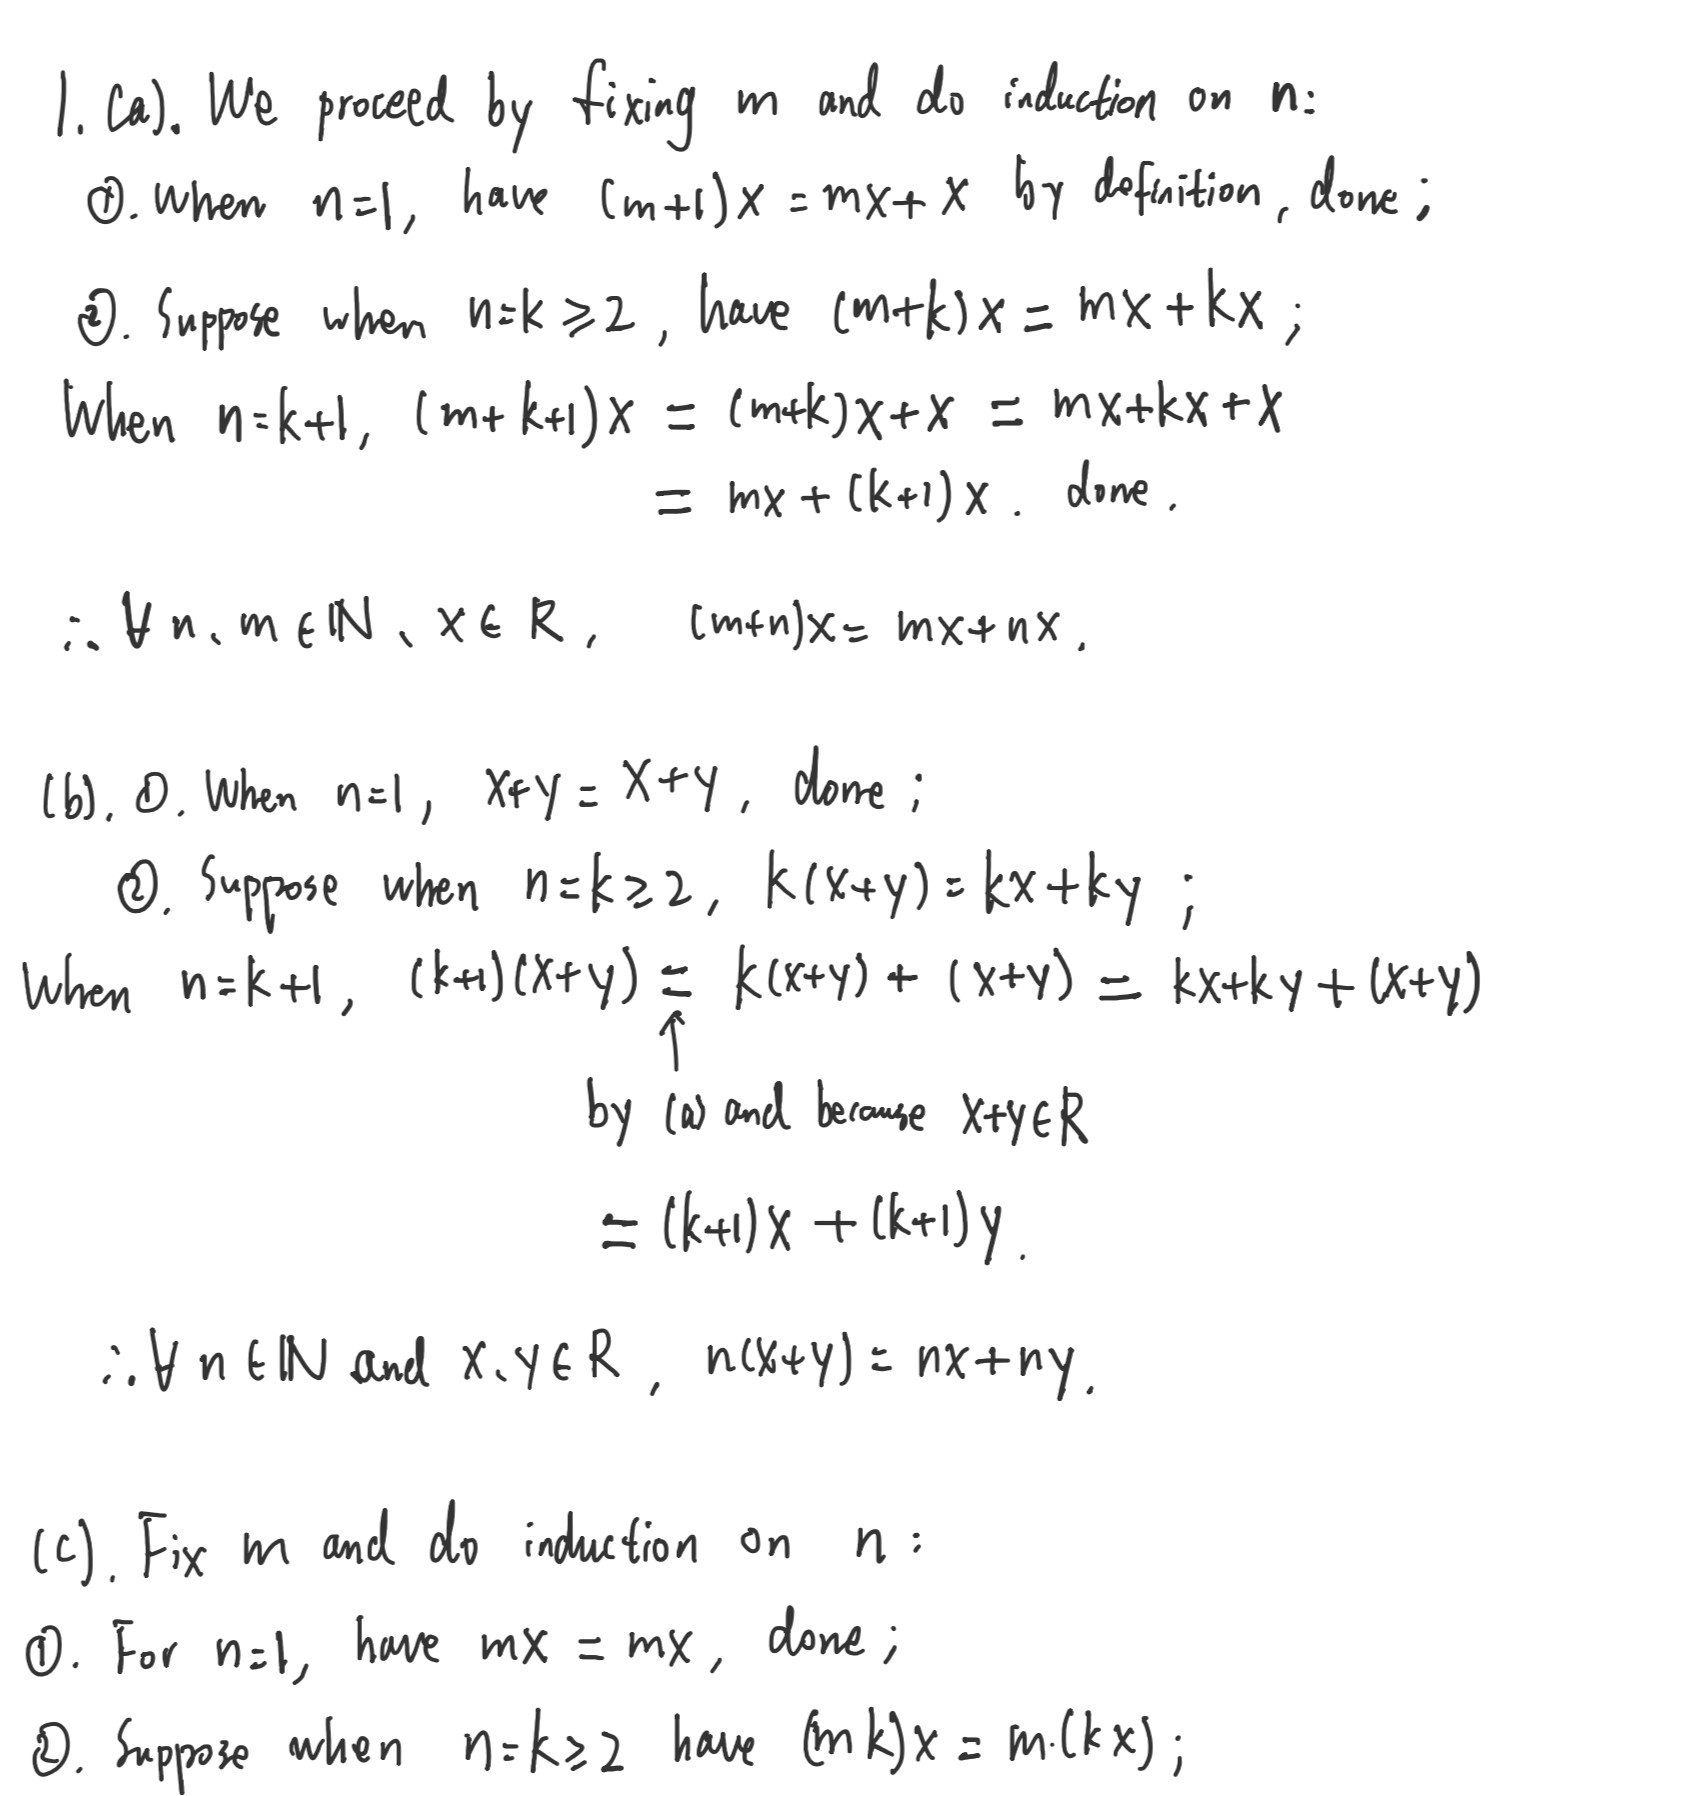 1. (a). We proceed by fixing m and do induction on n:
①. When n=1, have (m+1)x = mx+x by definition, done;
②. Suppose when n=k⩾2, have (m+k)x = mx+kx;
When n=k+1, (m+k+1)x = (m+k)x+x = mx+kx+x
= mx+(k+1)x. done.
∴ ∀ n、m∈ℕ、x∈R, (m+n)x = mx+nx.
(b). ①. When n=1, x+y = x+y, done;
②. Suppose when n=k⩾2, k(x+y) = kx+ky;
When n=k+1, (k+1)(x+y) = k(x+y) + (x+y) = kx+ky+(x+y)
↑
by (a) and because x+y∈R
= (k+1)x + (k+1)y.
∴ ∀ n∈ℕ and x、y∈R, n(x+y) = nx+ny.
(c). Fix m and do induction on n:
①. For n=1, have mx = mx, done;
②. Suppose when n=k⩾2 have (mk)x = m·(kx);